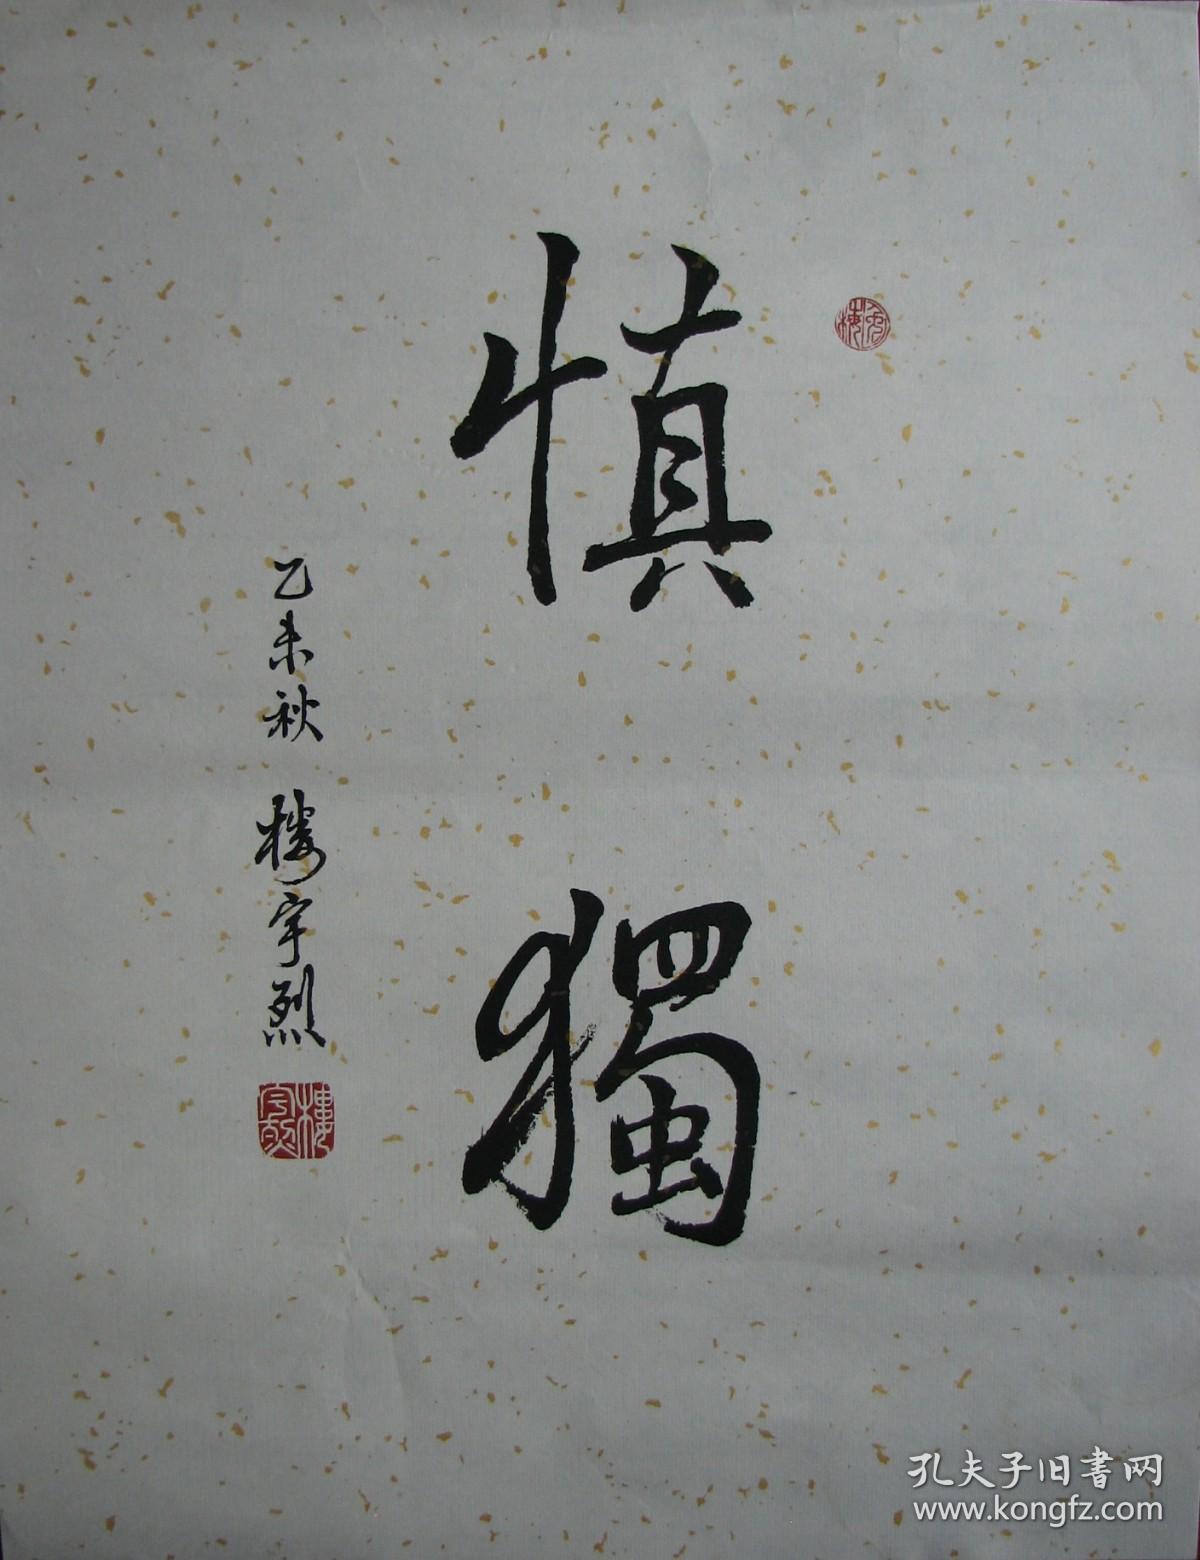 慎
獨
乙未秋 樓宇烈
樓宇烈
孔夫子旧書网
www.kongfz.com